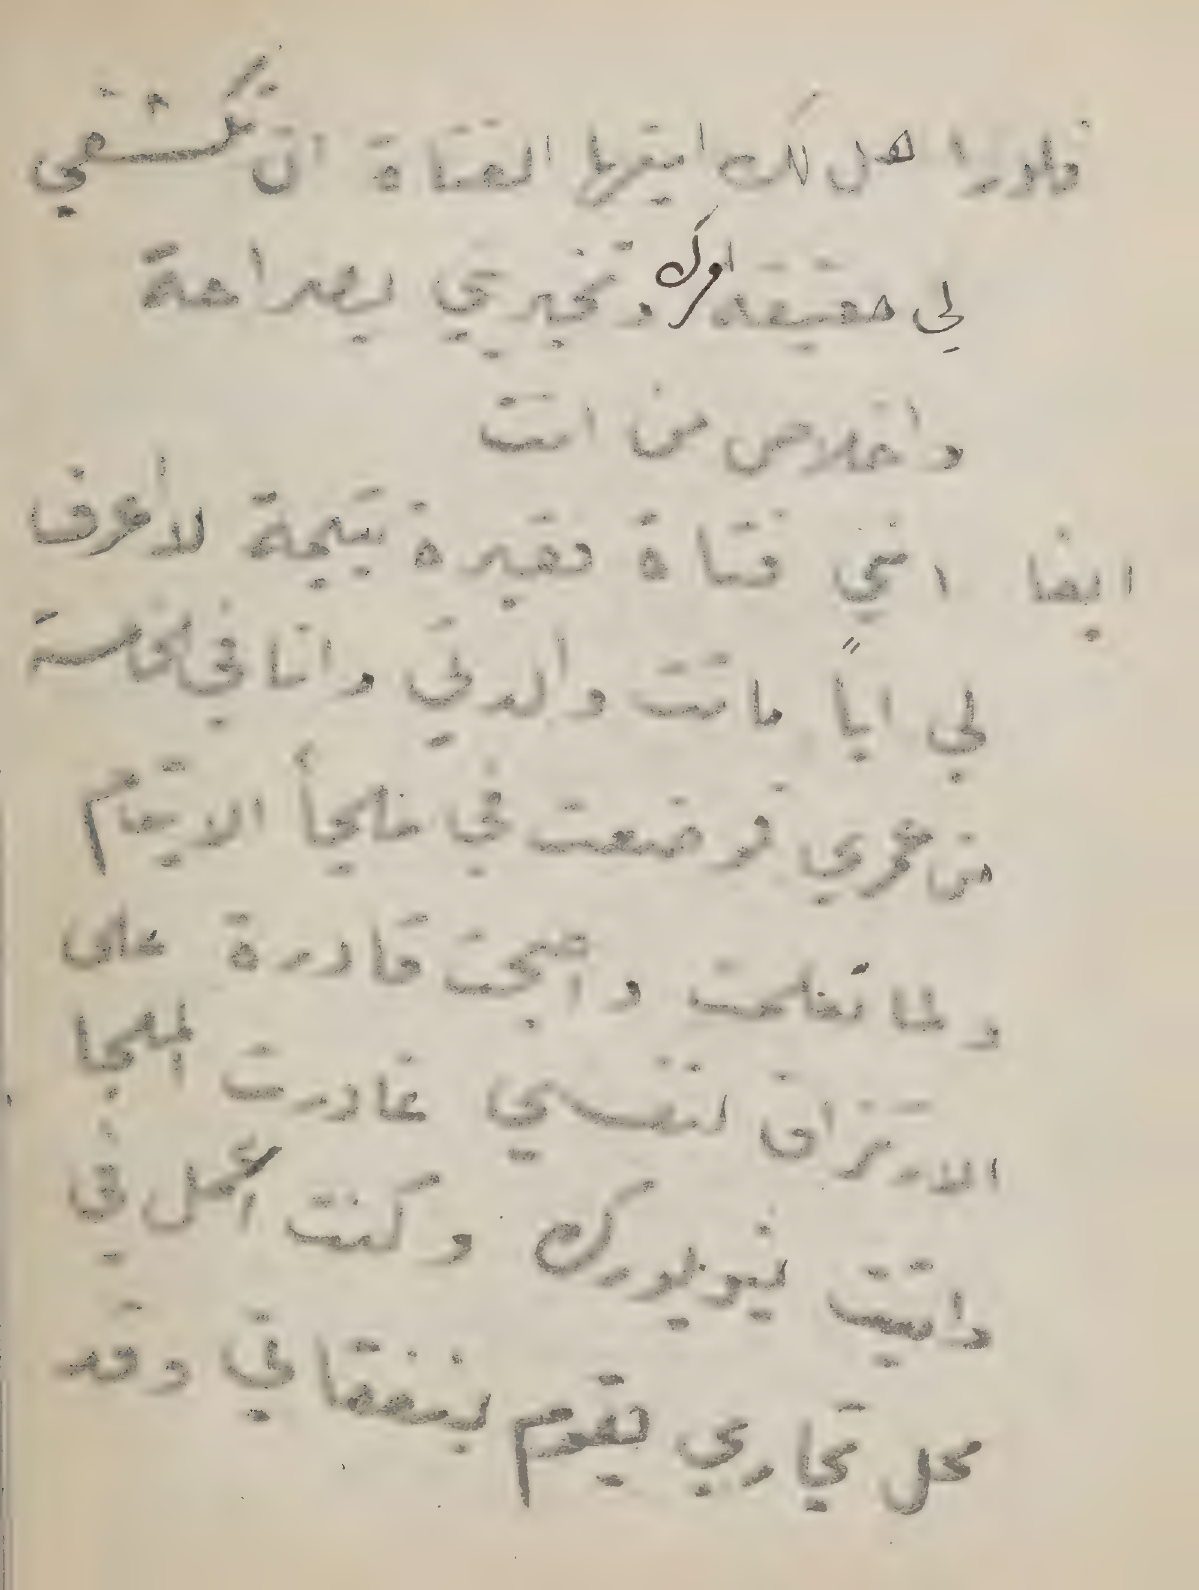 فلورا هل لك ايتها الفتاة ان تكشفي
لي حقيقة امرك وتخبريني بصراحة
واخلاص من انت
ايفا انني فتاة فقيرة يتيمة لا أعرف
لي اباً ماتت والدتي وانا في الخامسة
من عمري فوضعت في ملجأ الايتام
ولما تعلمت واصبحت قادرة على
الارتزاق لنفسي غادرت الملجا
واتيت نيويورك وكنت اعمل في
محل تجاري يقوم بنفقاتي وقد